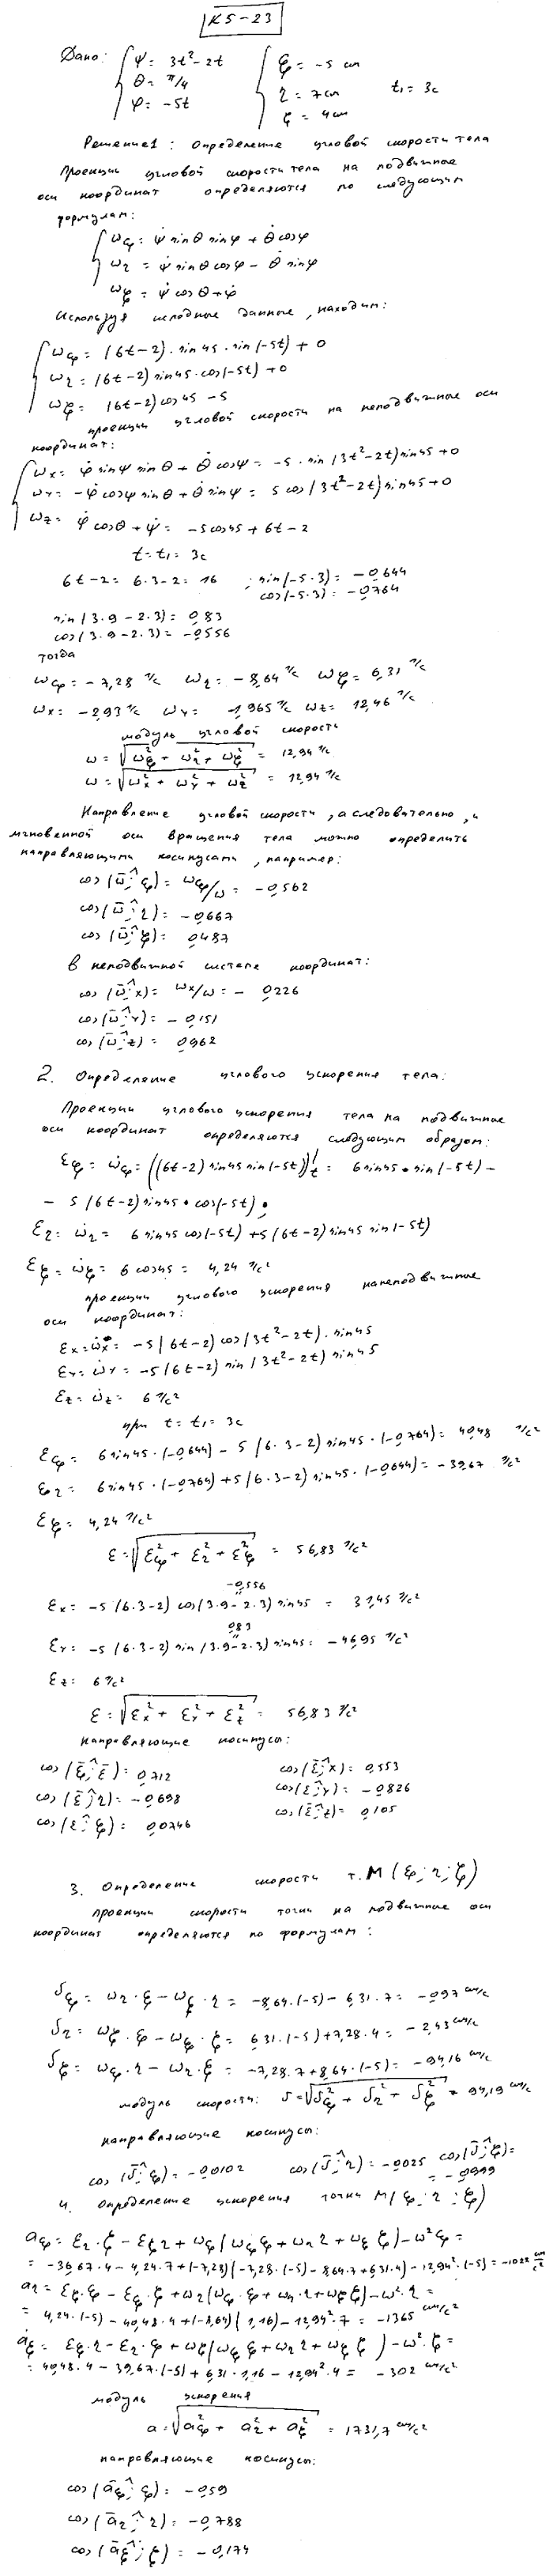 К5-23
Дано: { ψ = 3t²-2t { ξ = -5 см
θ = π/4 η = 7 см t₁ = 3с
φ = -5t ζ = 4 см
Решение 1: Определение угловой скорости тела
Проекции угловой скорости тела на подвижные
оси координат определяются по следующим
формулам:
ω_ξ = ψ̇ sinθ sinφ + θ̇ cosφ
ω_η = ψ̇ sinθ cosφ - θ̇ sinφ
ω_ζ = ψ̇ cosθ + φ̇
Используя исходные данные, находим:
ω_ξ = (6t-2)·sin45·sin(-5t) + 0
ω_η = (6t-2) sin45·cos(-5t) + 0
ω_ζ = (6t-2) cos45 - 5
проекции угловой скорости на неподвижные оси
координат:
ω_x = φ̇ sinψ sinθ + θ̇ cosψ = -5·sin(3t²-2t) sin45 + 0
ω_y = -φ̇ cosψ sinθ + θ̇ sinψ = 5 cos(3t²-2t) sin45 + 0
ω_z = φ̇ cosθ + ψ̇ = -5cos45 + 6t - 2
t = t₁ = 3с
6t-2 = 6·3-2 = 16 ; sin(-5·3) = -0,644
cos(-5·3) = -0,764
sin(3·9-2·3) = 0,83
cos(3·9-2·3) = -0,556
тогда
ω_ξ = -7,28 1/с ω_η = -8,64 1/с ω_ζ = 6,31 1/с
ω_x = -2,93 1/с ω_y = -1,965 1/с ω_z = 12,46 1/с
модуль угловой скорости
ω = √(ω_ξ² + ω_η² + ω_ζ²) = 12,94 1/с
ω = √(ω_x² + ω_y² + ω_z²) = 12,94 1/с
Направление угловой скорости, а следовательно, и
мгновенной оси вращения тела можно определить
направляющими косинусами, например:
cos(ω̄^ξ) = ω_ξ/ω = -0,562
cos(ω̄^η) = -0,667
cos(ω̄^ζ) = 0,487
В неподвижной системе координат:
cos(ω̄^x) = ω_x/ω = -0,226
cos(ω̄^y) = -0,151
cos(ω̄^z) = 0,962
2. Определение углового ускорения тела:
Проекции углового ускорения тела на подвижные
оси координат определяются следующим образом:
ε_ξ = ω̇_ξ = ((6t-2) sin45 sin(-5t))'_t = 6sin45·sin(-5t) -
- 5(6t-2) sin45·cos(-5t);
ε_η = ω̇_η = 6 sin45 cos(-5t) + 5(6t-2) sin45 sin(-5t)
ε_ζ = ω̇_ζ = 6 cos45 = 4,24 1/с²
проекции углового ускорения на неподвижные
оси координат:
ε_x = ω̇_x = -5(6t-2) cos(3t²-2t)·sin45
ε_y = ω̇_y = -5(6t-2) sin(3t²-2t) sin45
ε_z = ω̇_z = 6 1/с²
при t = t₁ = 3с
ε_ξ = 6sin45·(-0,644) - 5(6·3-2) sin45·(-0,764) = 40,48 1/с²
ε_η = 6sin45·(-0,764) + 5(6·3-2) sin45·(-0,644) = -39,67 1/с²
ε_ζ = 4,24 1/с²
ε = √(ε_ξ² + ε_η² + ε_ζ²) = 56,83 1/с²
-0,556
ε_x = -5(6·3-2) cos(3·9-2·3) sin45 = 31,45 1/с²
0,83
ε_y = -5(6·3-2) sin(3·9-2·3) sin45 = -46,95 1/с²
ε_z = 6 1/с²
ε = √(ε_x² + ε_y² + ε_z²) = 56,83 1/с²
направляющие косинусы:
cos(ξ^ε̄) = 0,712 cos(ε̄^x) = 0,553
cos(ε̄^η) = -0,698 cos(ε̄^y) = -0,826
cos(ε^ζ) = 0,0746 cos(ε̄^z) = 0,105
3. Определение скорости т. M(ξ; η; ζ)
проекции скорости точки на подвижные оси
координат определяются по формулам:
υ_ξ = ω_η·ζ - ω_ζ·η = -8,64·(-5) - 6,31·7 = -0,97 см/с
υ_η = ω_ζ·ξ - ω_ξ·ζ = 6,31·(-5) + 7,28·4 = -2,43 см/с
υ_ζ = ω_ξ·η - ω_η·ξ = -7,28·7 + 8,64·(-5) = -94,16 см/с
модуль скорости: υ = √(υ_ξ² + υ_η² + υ_ζ²) = 94,19 см/с
направляющие косинусы:
cos(ῡ^ξ) = -0,0102 cos(ῡ^η) = -0,025 cos(ῡ^ζ) =
= -0,999
4. Определение ускорения точки M(ξ; η; ζ)
a_ξ = ε_η·ζ - ε_ζ·η + ω_ξ(ω_ξ ξ + ω_η η + ω_ζ ζ) - ω²·ξ =
= -36,67·4 - 4,24·7 + (-7,28)(-7,28·(-5) - 8,64·7 + 6,31·4) - 12,94²·(-5) = -1022 см/с²
a_η = ε_ζ·ξ - ε_ξ·ζ + ω_η(ω_ξ·ξ + ω_η·η + ω_ζ ζ) - ω²·η =
= 4,24·(-5) - 40,48·4 + (-8,64)(1,16) - 12,94²·7 = -1365 см/с²
a_ζ = ε_ξ·η - ε_η·ξ + ω_ζ(ω_ξ ξ + ω_η η + ω_ζ ζ) - ω²·ζ =
= 40,48·4 - 39,67·(-5) + 6,31·1,16 - 12,94²·4 = -302 см/с²
модуль ускорения
a = √(a_ξ² + a_η² + a_ζ²) = 1731,7 см/с²
направляющие косинусы:
cos(ā_ξ^ξ) = -0,59
cos(ā_η^η) = -0,788
cos(ā_ζ^ζ) = -0,174